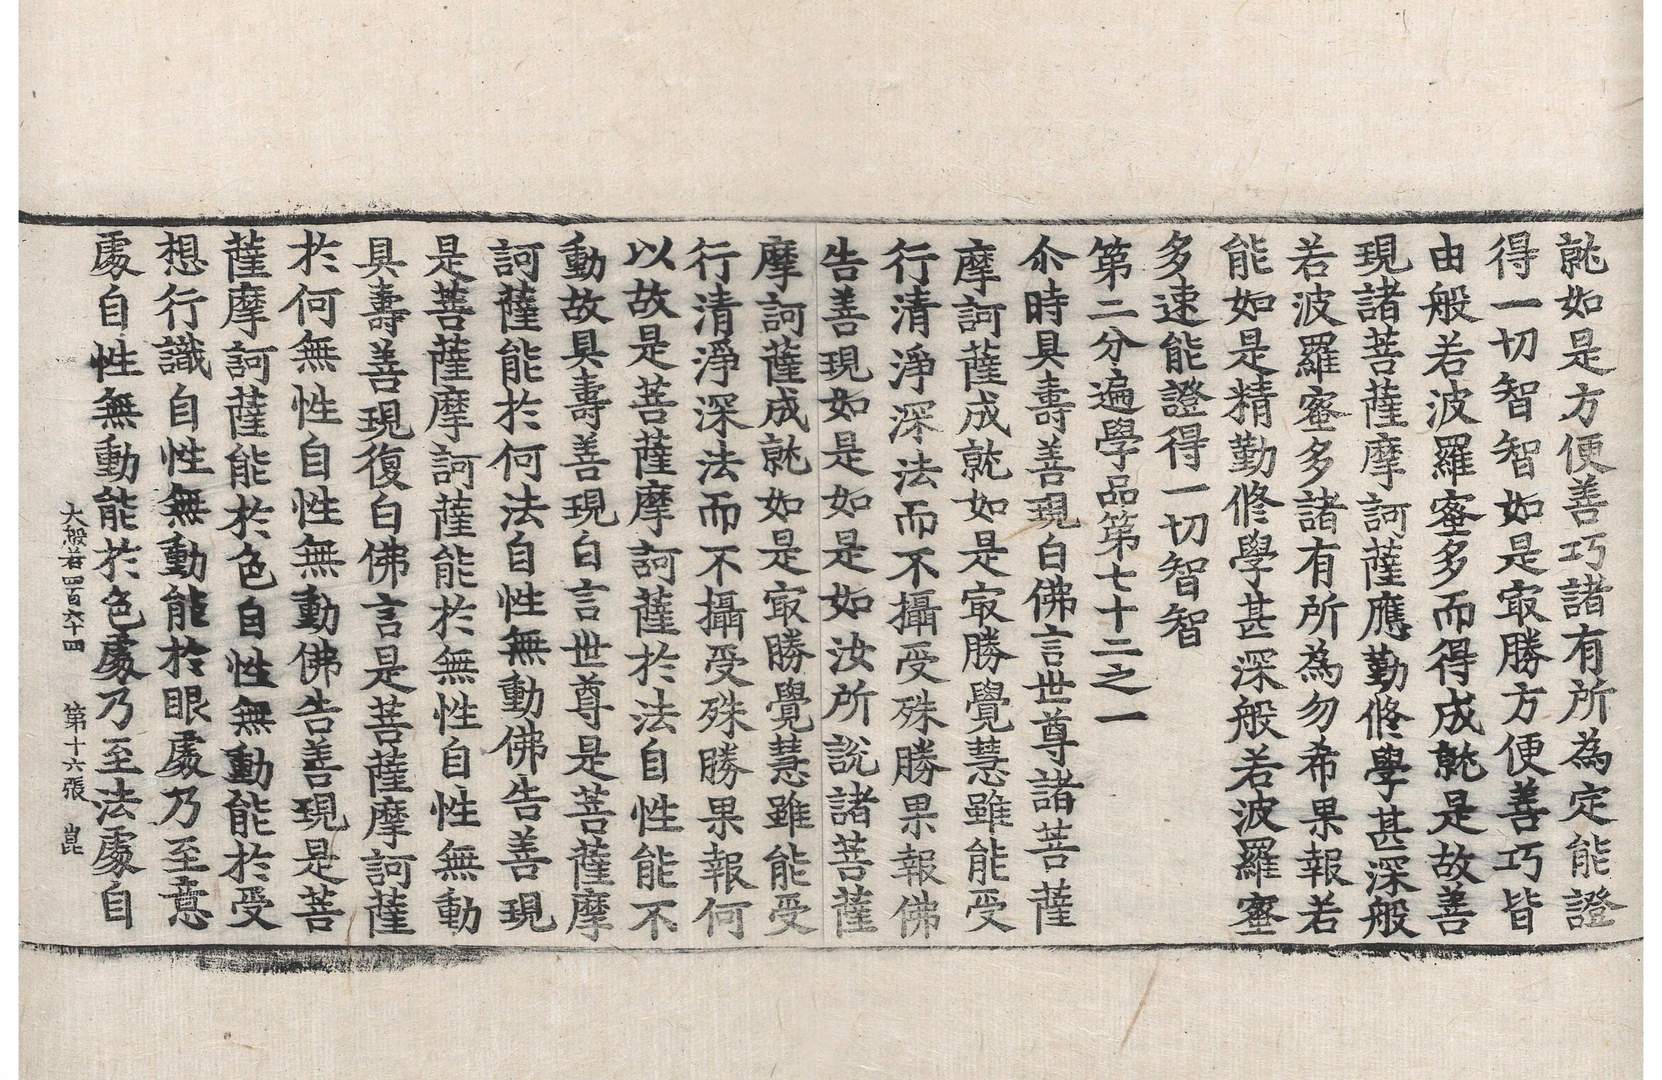 就如是方便善巧諸有所為定能證
得一切智智如是㝡勝方便善巧皆
由般若波羅蜜多而得成就是故善
現諸菩薩摩訶薩應勤修學甚深般
若波羅蜜多諸有所為勿希果報若
能如是精勤修學甚深般若波羅蜜
多速能證得一切智智
第二分遍學品第七十二之一
尒時具壽善現白佛言世尊諸菩薩
摩訶薩成就如是㝡勝覺慧雖能受
行清淨深法而不攝受殊勝果報佛
告善現如是如是如汝所說諸菩薩
摩訶薩成就如是㝡勝覺慧雖能受
行清淨深法而不攝受殊勝果報何
以故是菩薩摩訶薩於法自性能不
動故具壽善現白言世尊是菩薩摩
訶薩能於何法自性無動佛告善現
是菩薩摩訶薩能於無性自性無動
具壽善現復白佛言是菩薩摩訶薩
於何無性自性無動佛告善現是菩
薩摩訶薩能於色自性無動能於受
想行識自性無動能於眼處乃至意
處自性無動能於色處乃至法處自
大般若四百六十四 第十六張 崑